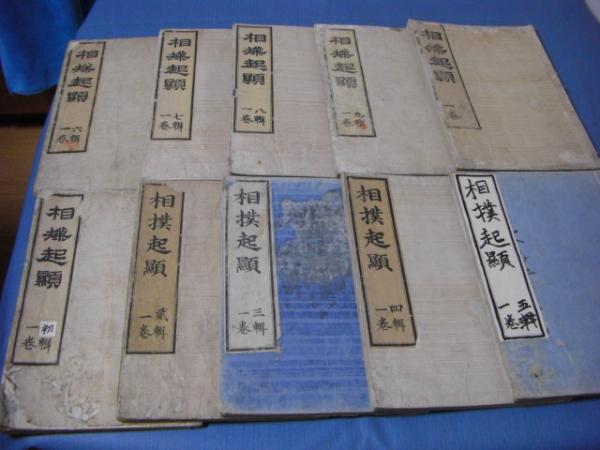 相撲起顕
六輯
一巻
相撲起顕
七輯
一巻
相撲起顕
八輯
一巻
相撲起顕
九輯
一巻
相撲起顕
一巻
相撲起顕
初輯
一巻
相撲起顯
貳輯
一巻
相撲起顯
三輯
一巻
相撲起顯
四輯
一巻
相撲起顯
五輯
一巻